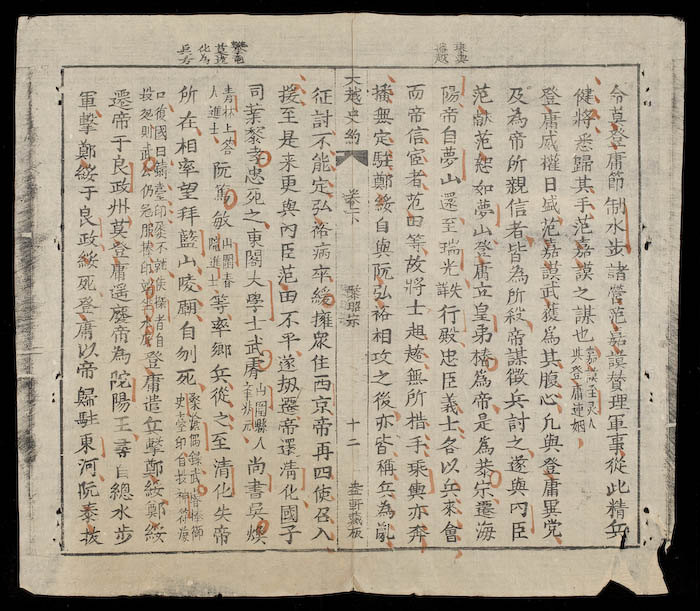 乘輿
播越
令莫登庸節制水步諸營范嘉謨贊理軍事從此精兵
健將悉歸其手范嘉謨之謀也嘉謨至灵人與登庸連姻
登庸威權日盛范嘉謨武獲為其腹心凡與登庸異党
及為帝所親信者皆為所殺帝謀徵兵討之遂與內臣
范獻范恕如夢山登庸立皇弟椿為帝是為恭宗還海
陽帝自夢山還至瑞光行殿忠臣義士各以兵來會
而帝信宦者范田等故將士趄趦無所措手乘輿亦奔
播無定駐鄭綏自與阮弘裕相攻之後亦皆稱兵為亂
大越史約 卷下 黎昭宗 十二 軒藏板
征討不能定弘裕病卒綏擁衆住西京帝再四使召入
援至是來更與內臣范田不平遂刼遷帝還清化國子
司業黎孝忠死之東閣大學士武睿山圍縣人狀元尚書吳煥
青林上答人進士阮篤敏山圍春隴進士等率鄉兵從之至清化失帝
所在相率望拜藍山陵廟自刎死
登庸遣兵擊鄭綏鄭綏
遷帝于良政州莫登庸遥廢帝為陀陽王尋自總水步
軍擊鄭綏于良政綏死登庸以帝歸駐東河阮泰拔